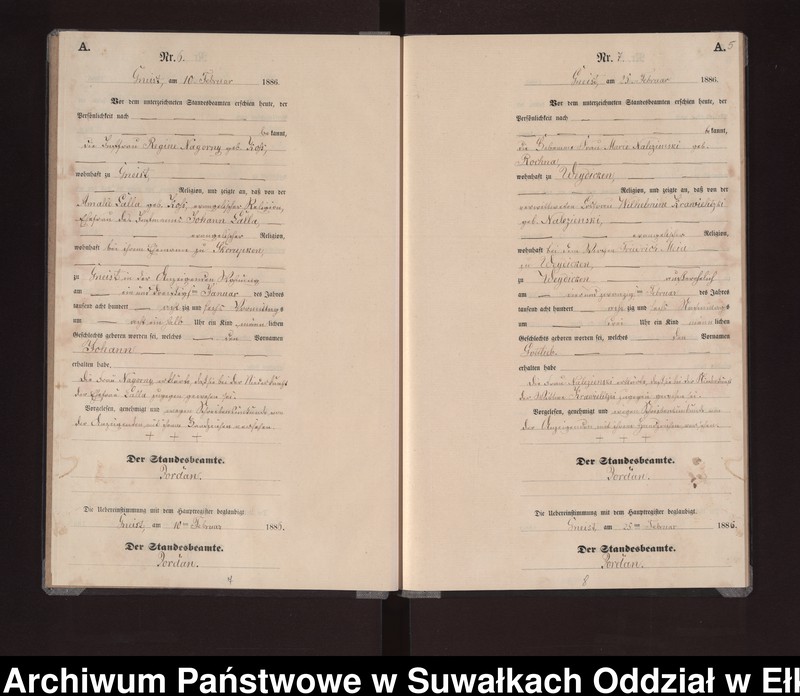 A.
Nr. 6.
Gneist, am 10. Februar 1886.
Vor dem unterzeichneten Standesbeamten erschien heute, der
Persönlichkeit nach
be kannt,
die Regine Nagorny geb. Koß,
wohnhaft zu Gneist,
Religion, und zeigte an, daß von der
Amalie Lalla, geb. Koß, evangelischer Religion,
Ehefrau des Johann Lalla
evangelischer Religion,
wohnhaft bei ihrem Ehemanne zu Skomatzken,
zu Gneist in der Anzeigenden Wohnung
am ein und dreißigsten Januar des Jahres
tausend acht hundert acht zig und sechs Vormittags
um acht ein halb Uhr ein Kind männ lichen
Geschlechts geboren worden sei, welches den Vornamen
Johann
erhalten habe,
die Frau Nagorny erklärte, daß sie bei der Niederkunft
der Ehefrau Lalla zugegen gewesen sei.
Vorgelesen, genehmigt und wegen
der Anzeigenden mit ihrem Handzeichen versehen
+ + +
Der Standesbeamte.
Jordan.
Die Uebereinstimmung mit dem Hauptregister beglaubigt
Gneist, am 10ten Februar 1886.
Der Standesbeamte.
Jordan.
A. 5
Nr. 7.
Gneist, am 25. Februar 1886.
Vor dem unterzeichneten Standesbeamten erschien heute, der
Persönlichkeit nach
be kannt,
die Hebamme Frau Marie Nalozinski geb.
wohnhaft zu
Religion, und zeigte an, daß von der
Wilhelmine
geb. Nalozinski,
evangelischer Religion,
wohnhaft bei dem
zu
zu
am ein und zwanzigsten Februar des Jahres
tausend acht hundert acht zig und sechs Vormittags
um drei Uhr ein Kind männ lichen
Geschlechts geboren worden sei, welches den Vornamen
Gottlieb
erhalten habe
die Frau Nalozinski erklärte, daß sie bei der Niederkunft
der zugegen gewesen sei.
Vorgelesen, genehmigt und wegen
der Anzeigenden mit ihrem Handzeichen versehen
+ + +
Der Standesbeamte.
Jordan.
Die Uebereinstimmung mit dem Hauptregister beglaubigt
Gneist, am 25ten Februar 1886.
Der Standesbeamte.
Jordan.
8
Archiwum Państwowe w Suwałkach Oddział w Eł